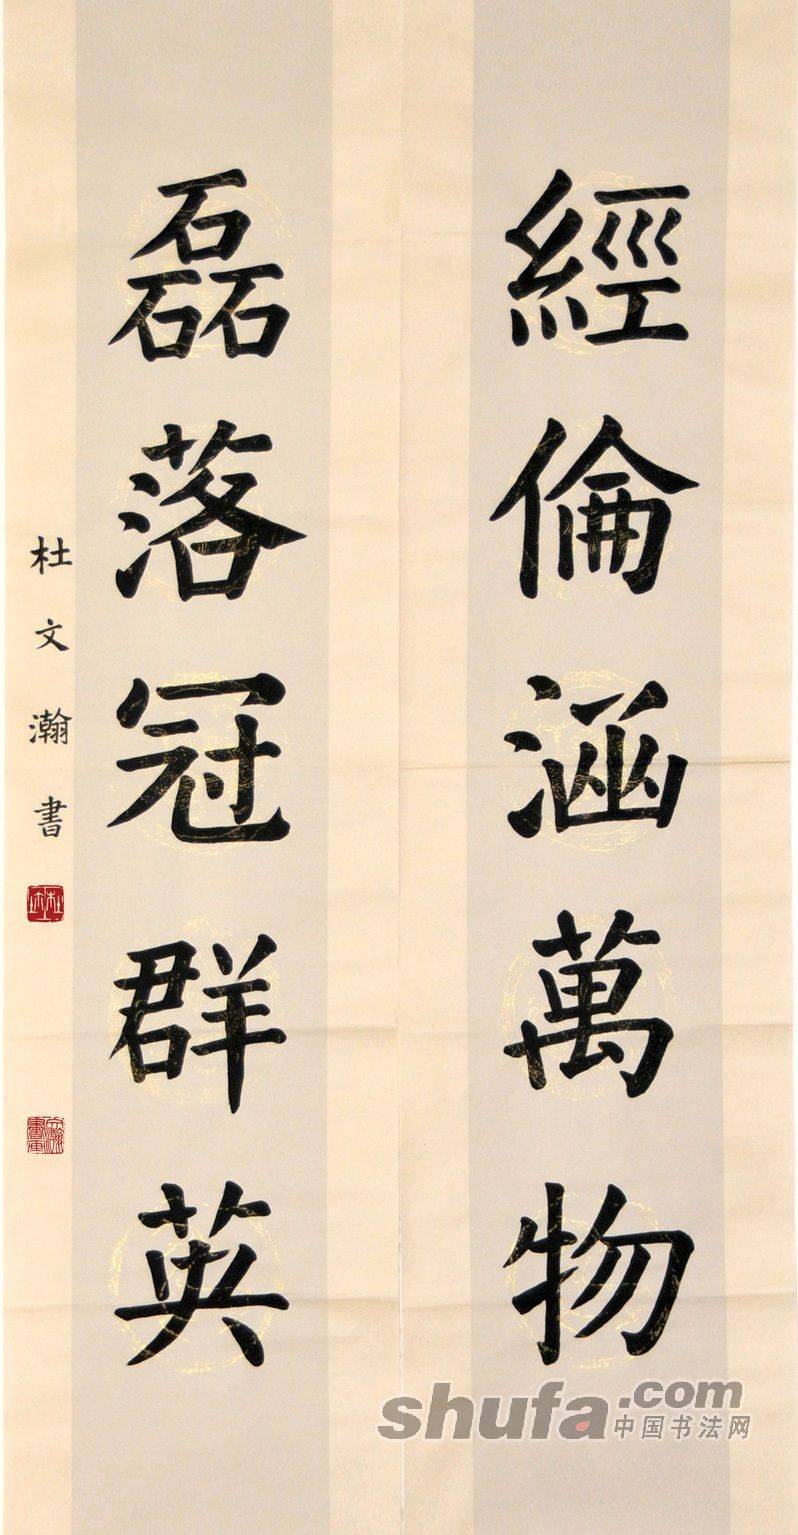 經倫涵萬物
磊落冠群英
杜文瀚書
shufa.com
中国书法网